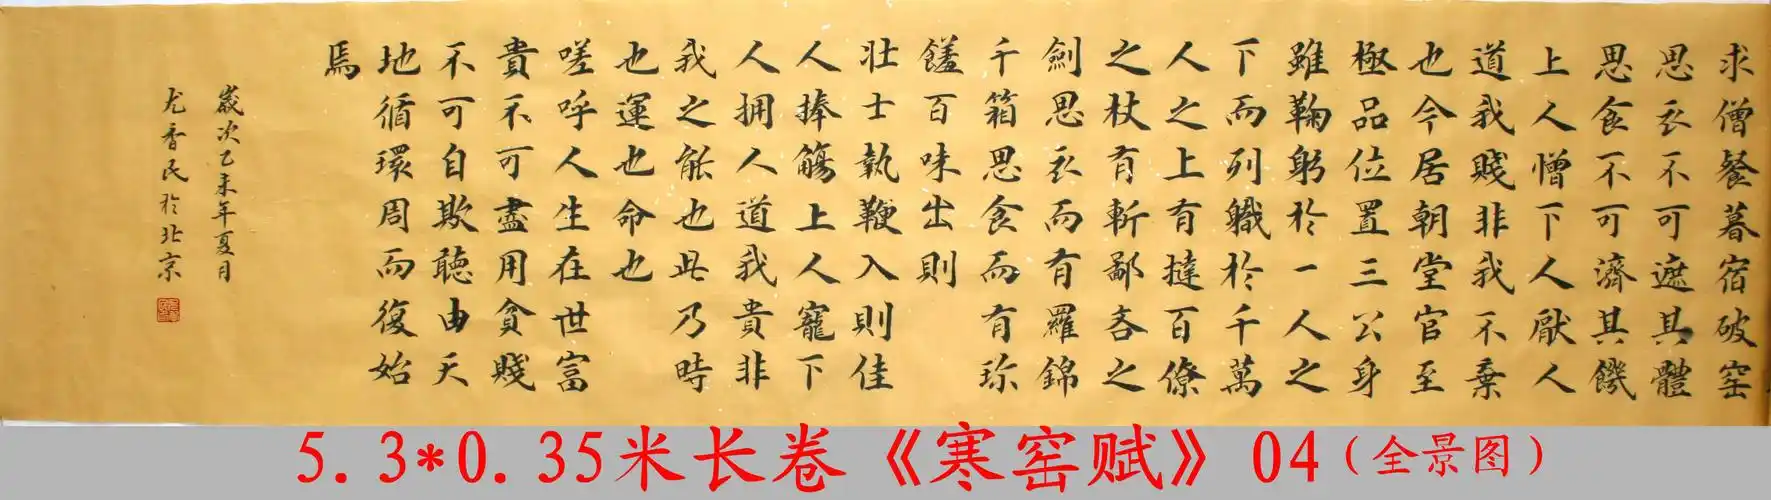 求僧餐暮宿破窑
思衣不可遮其體
思食不可濟其饑
上人憎下人厭人
道我賤非我不棄
也今居朝堂官至
極品位置三公身
雖鞠躬於一人之
下而列職於千萬
人之上有撻百僚
之杖有斬鄙吝之
劍思衣而有羅錦
千箱思食而有珍
饈百味出則
壯士執鞭入則佳
人捧觴上人寵下
人拥人道我貴非
我之能也此乃時
也運也命也
嗟呼人生在世富
貴不可盡用貧賤
不可自欺聽由天
地循環周而復始
焉
歲次乙未年夏月
尤香民於北京
5.3*0.35米长卷《寒窑赋》04（全景图）